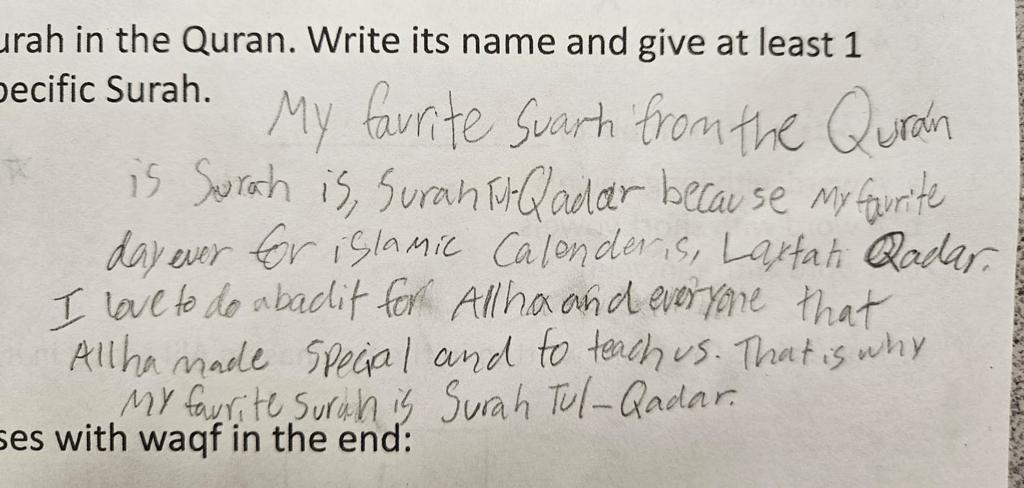 urah in the Quran. Write its name and give at least 1
pecific Surah.
My favrite Suarh from the Qurán
is Surah is, Surah Tul-Qadar because my favrite
day ever for islamic Calender is, Laytah Qadar.
I love to do abadit for Allha and everyone that
Allha made special and to teach us. That is why
My favrite Surah is Surah Tul-Qadar.
ses with waqf in the end: